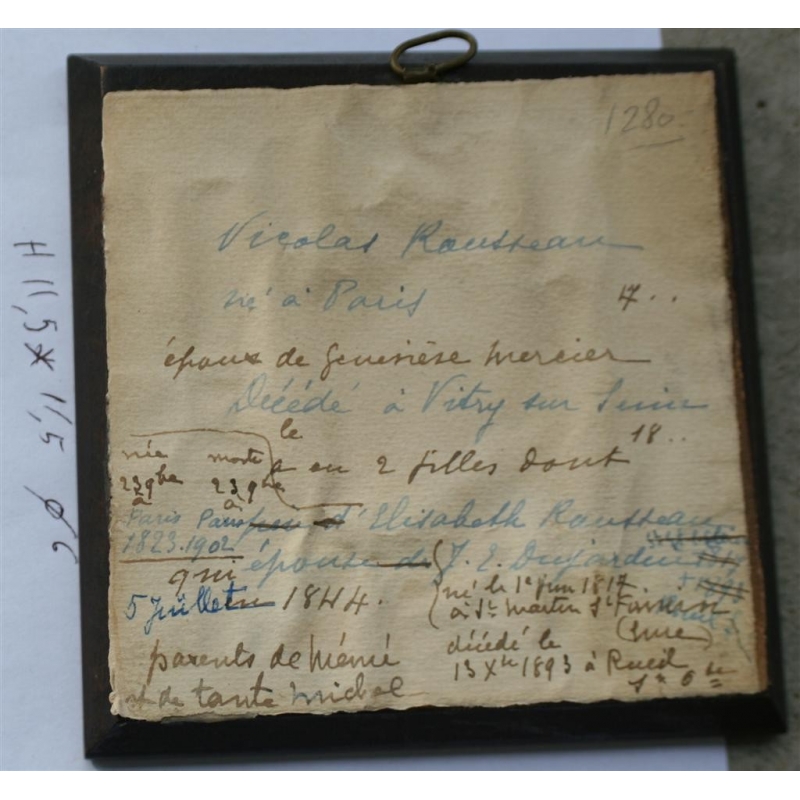 1280-
Nicolas Rousseau
né à Paris 17..
époux de Geneviève Mercier
Décédé à Vitry sur Seine
le 18..
a eu 2 filles dont
née morte
23 9bre 23 9bre
à à
Paris Paris
1823.1902
Elisabeth Rousseau
qui épouse J. E. Dujardin
5 Juillet 1844.
né le 1e juin 1817
à St Martin St Firmin
(Eure)
décédé le
13 Xbre 1893 à Rueil
S. & O.
parents de Mémé
et de tante Michel
H 11,5 x 11,5 Ø 6